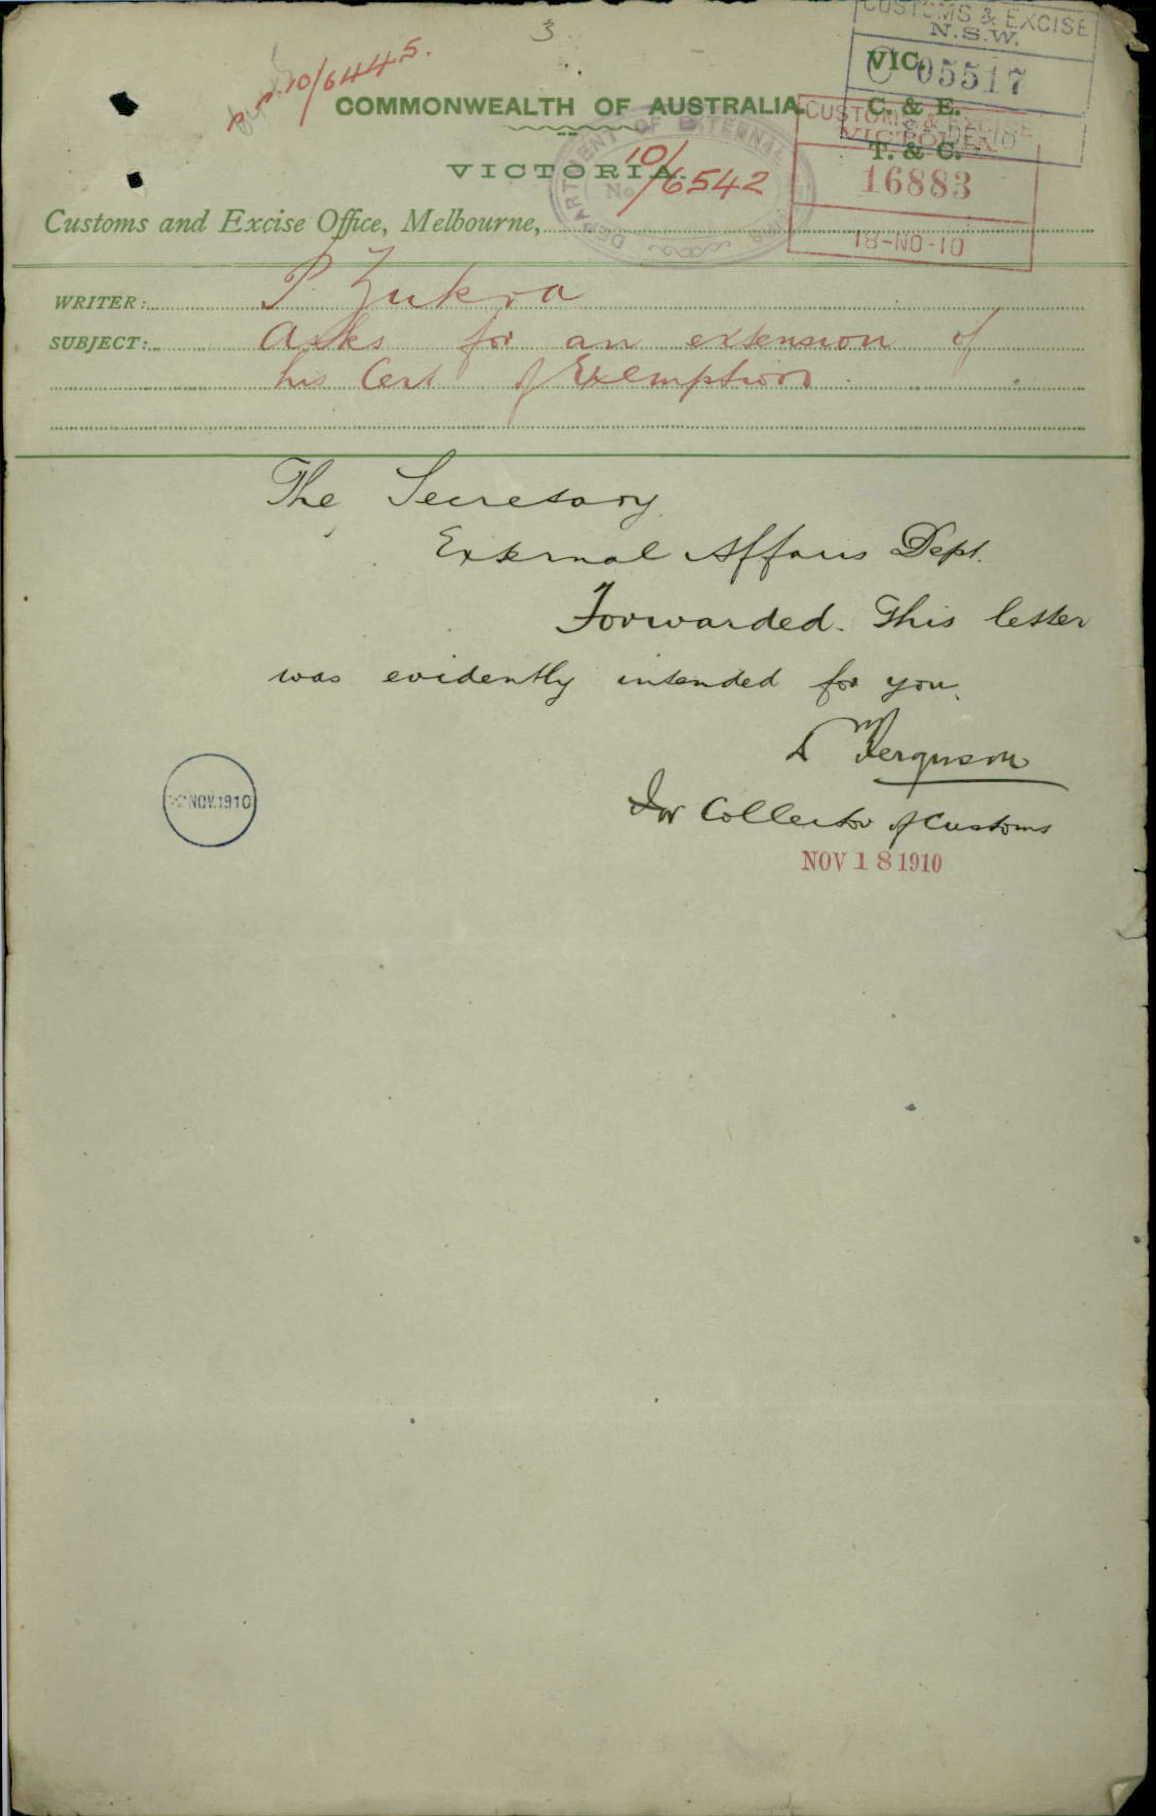 3
10/6445.
CUSTOMS & EXCISE
N.S.W.
C 05517
VIC.
C. & E.
T. & C.
COMMONWEALTH OF AUSTRALIA.
CUSTOMS & EXCISE
VICTORIA
16883
18-NO-10
DEPARTMENT OF EXTERNAL
No 10/6542
VICTORIA.
Customs and Excise Office, Melbourne,
WRITER: P. Zukra
SUBJECT: Asks for an extension of
his Cert of Exemption.
The Secretary
External Affairs Dept.
Forwarded. This letter
was evidently intended for you.
Ferguson
For Collector of Customs
NOV 18 1910
NOV.1910